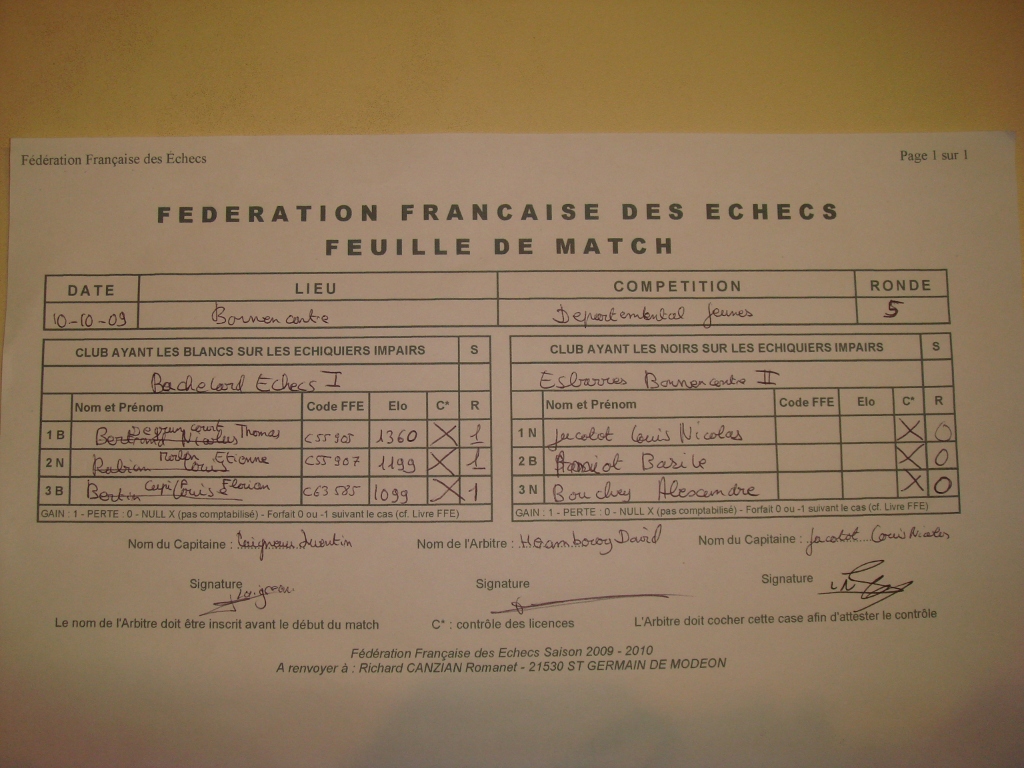 Fédération Française des Échecs
Page 1 sur 1
FEDERATION FRANCAISE DES ECHECS
FEUILLE DE MATCH
DATE LIEU COMPETITION RONDE
10-10-09 Bonnencontre Departemental Jeunes 5
CLUB AYANT LES BLANCS SUR LES ECHIQUIERS IMPAIRS S
CLUB AYANT LES NOIRS SUR LES ECHIQUIERS IMPAIRS S
Bachelard Echecs I
Esbarres Bonnencontre II
Nom et Prénom Code FFE Elo C* R
Nom et Prénom Code FFE Elo C* R
1 B Bertrand Nicolas Thomas C55905 1360 X 1
1 N Jacotot Louis Nicolas X 0
2 N Etienne C55907 1199 X 1
2 B Basile X 0
3 B Bertin Louis Florian C63585 1099 X 1
3 N Bouchey Alexandre X 0
GAIN : 1 - PERTE : 0 - NULL X (pas comptabilisé) - Forfait 0 ou -1 suivant le cas (cf. Livre FFE)
GAIN : 1 - PERTE : 0 - NULL X (pas comptabilisé) - Forfait 0 ou -1 suivant le cas (cf. Livre FFE)
Nom du Capitaine : Quentin
Nom de l'Arbitre : David
Nom du Capitaine : Jacotot Louis Nicolas
Signature
Signature
Signature
Le nom de l'Arbitre doit être inscrit avant le début du match
C* : contrôle des licences
L'Arbitre doit cocher cette case afin d'attester le contrôle
Fédération Française des Echecs Saison 2009 - 2010
A renvoyer à : Richard CANZIAN Romanet - 21530 ST GERMAIN DE MODEON